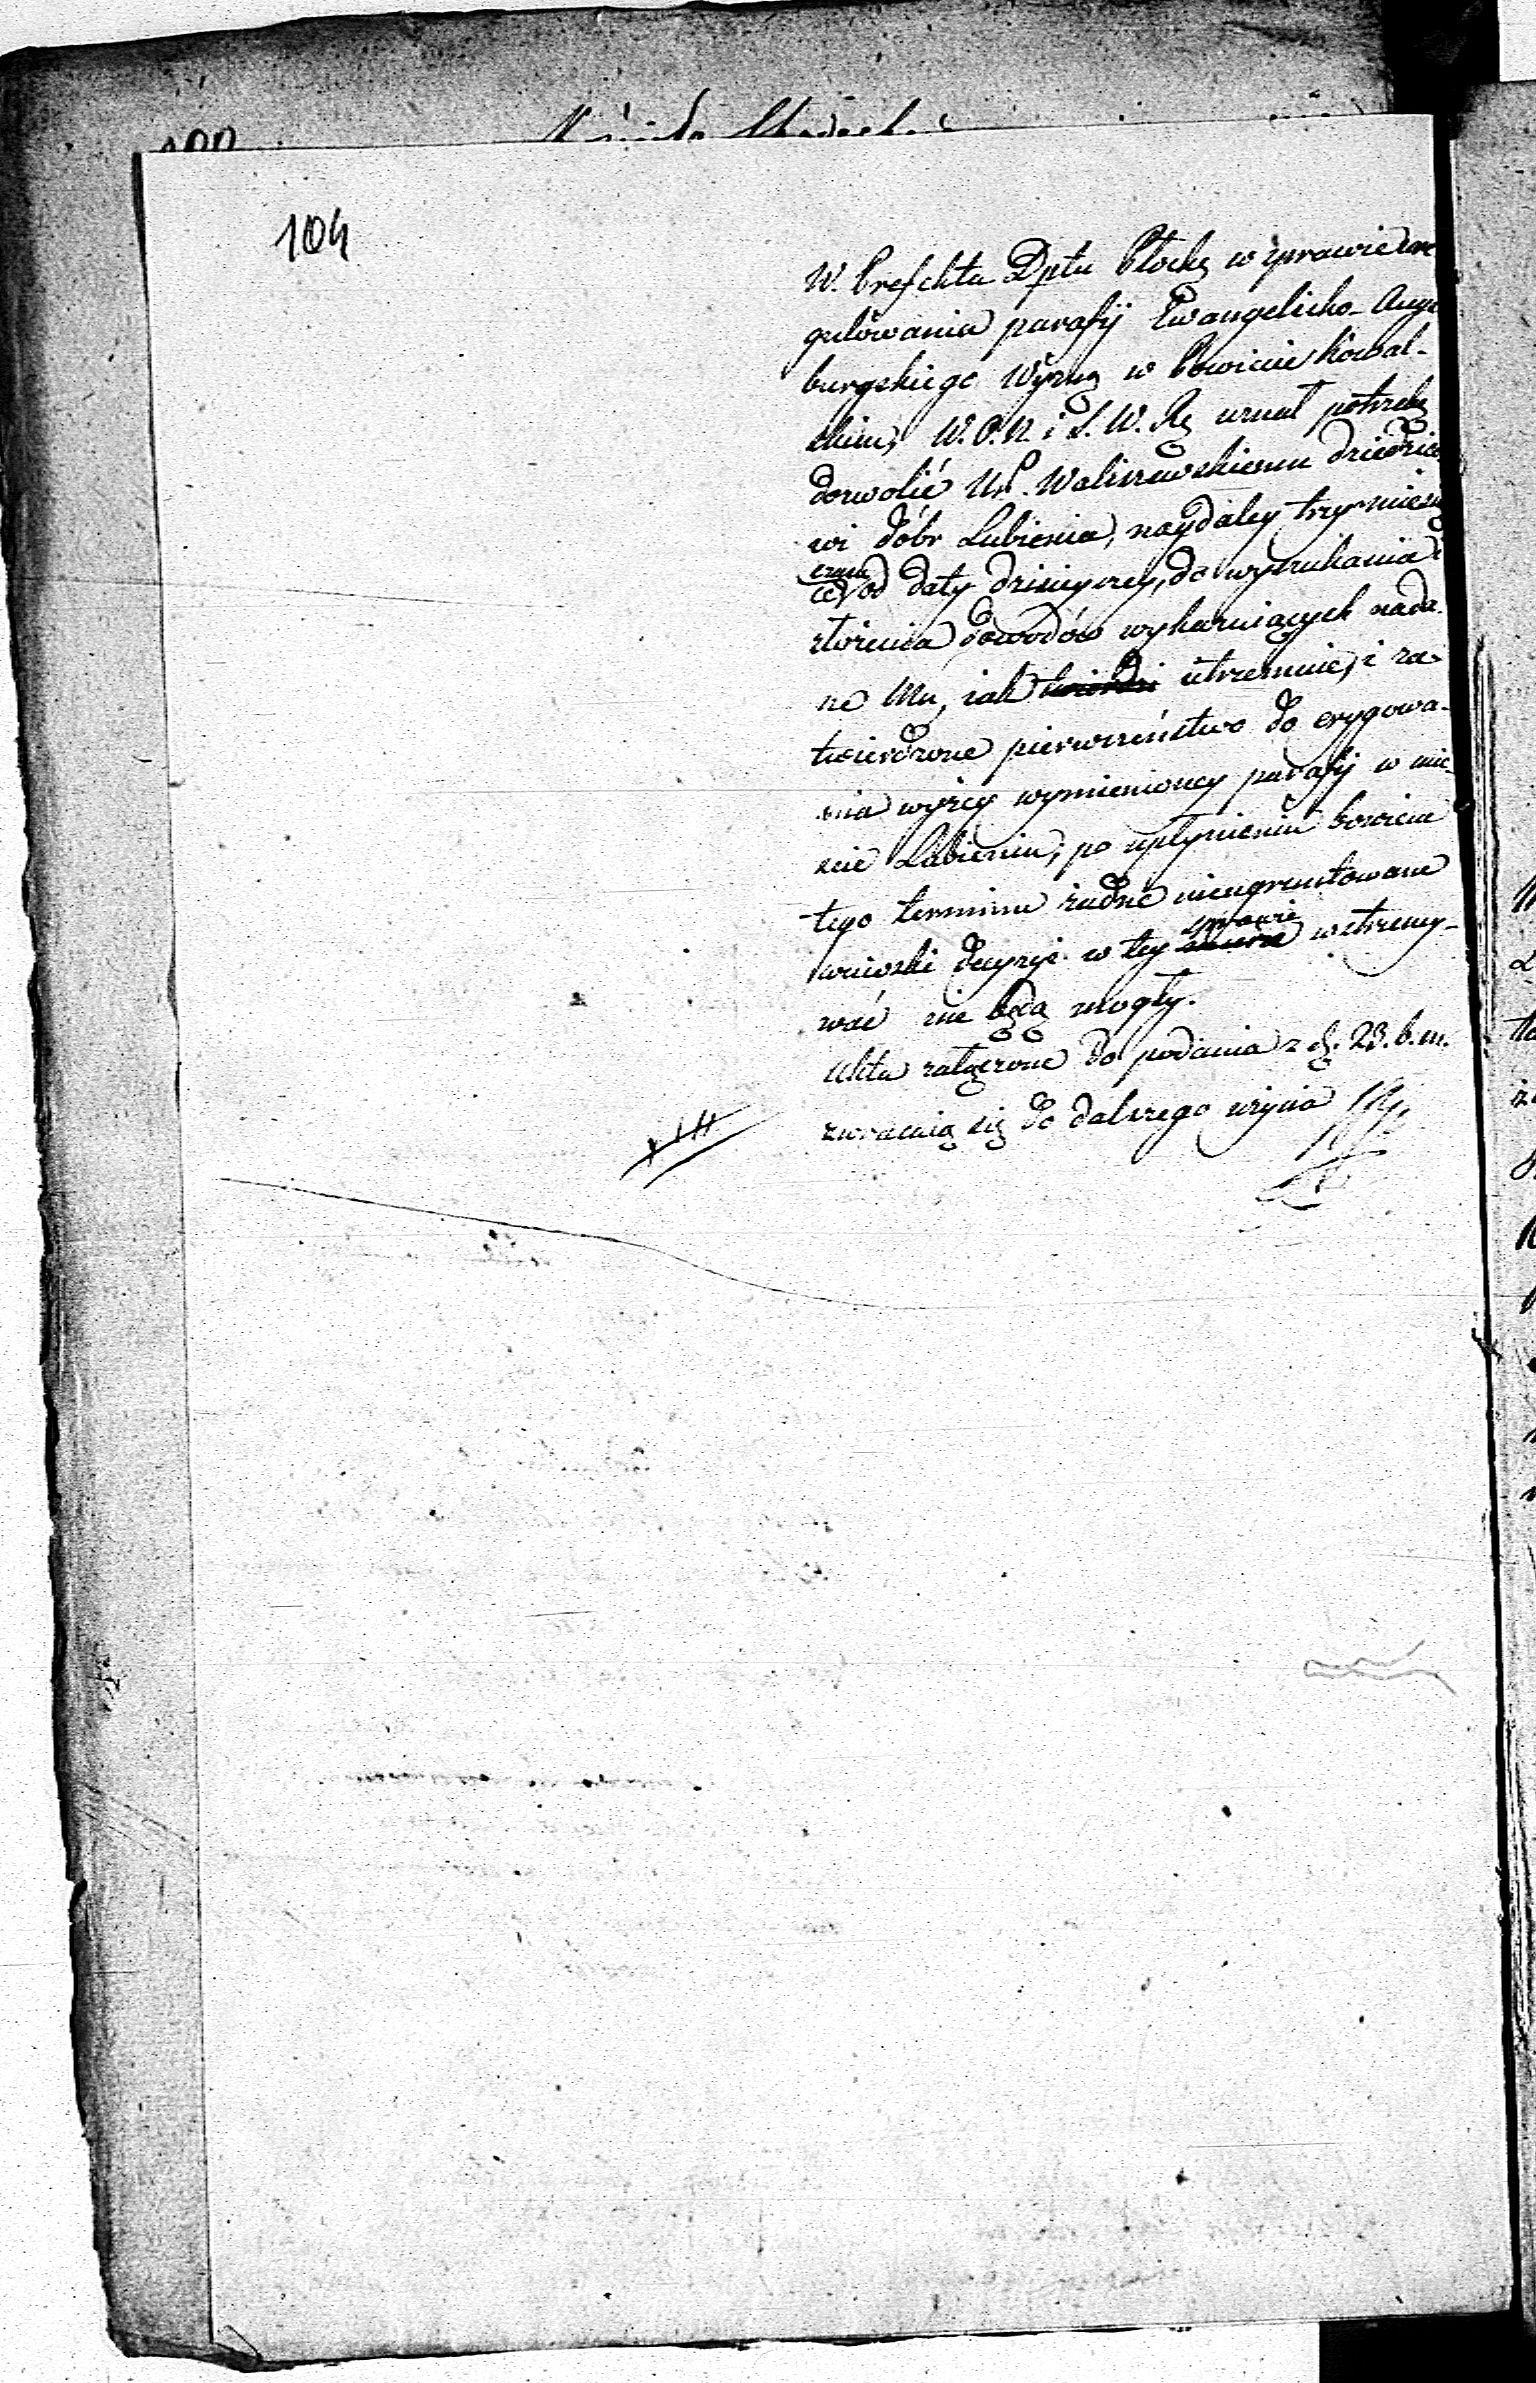 104
W. Prefekta Dptu Płockg w sprawie ure
gulówania parafij Ewangelicko-Augs
burgskiego Wyzng w Powiecie Kowal-
skim, W. P. N. i S. W. Rg uznał potrzebę
dozwolić Ur. Waliszewskiemu dziedzico
wi dóbr Lubienia, naydaley trzymiesię
czny od daty dzisieyszey, do wyszukania i
złożenia dowodów wykazuiących nada-
ne Mu, iak twierdzi utrzemuie, i za-
twierdzone pierwszeństwo do erygowa-
nia wyżey wymienioney parafij w mie-
ście Lubieniu, po upłynieniu bowiem
tego terminu żadne nieugruntowane
wnioski decyzyi w tey sprawie wstrzmy-
wać nie będą mogły.
Akta załączone do podania z d. 23. b. m.
zwracaią się do dalszego użycia